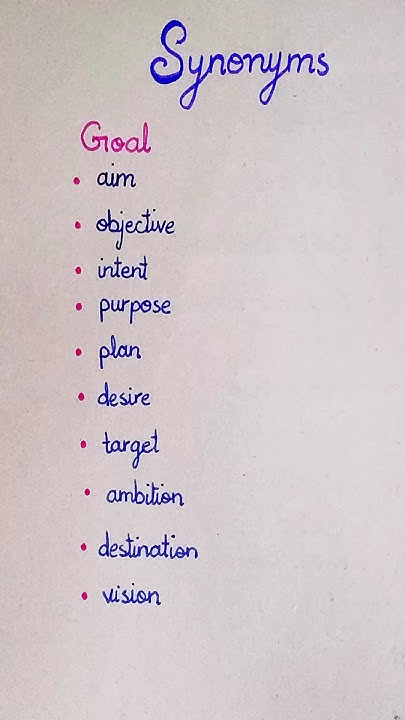 Synonyms
Goal
• aim
• objective
• intent
• purpose
• plan
• desire
• target
• ambition
• destination
• vision